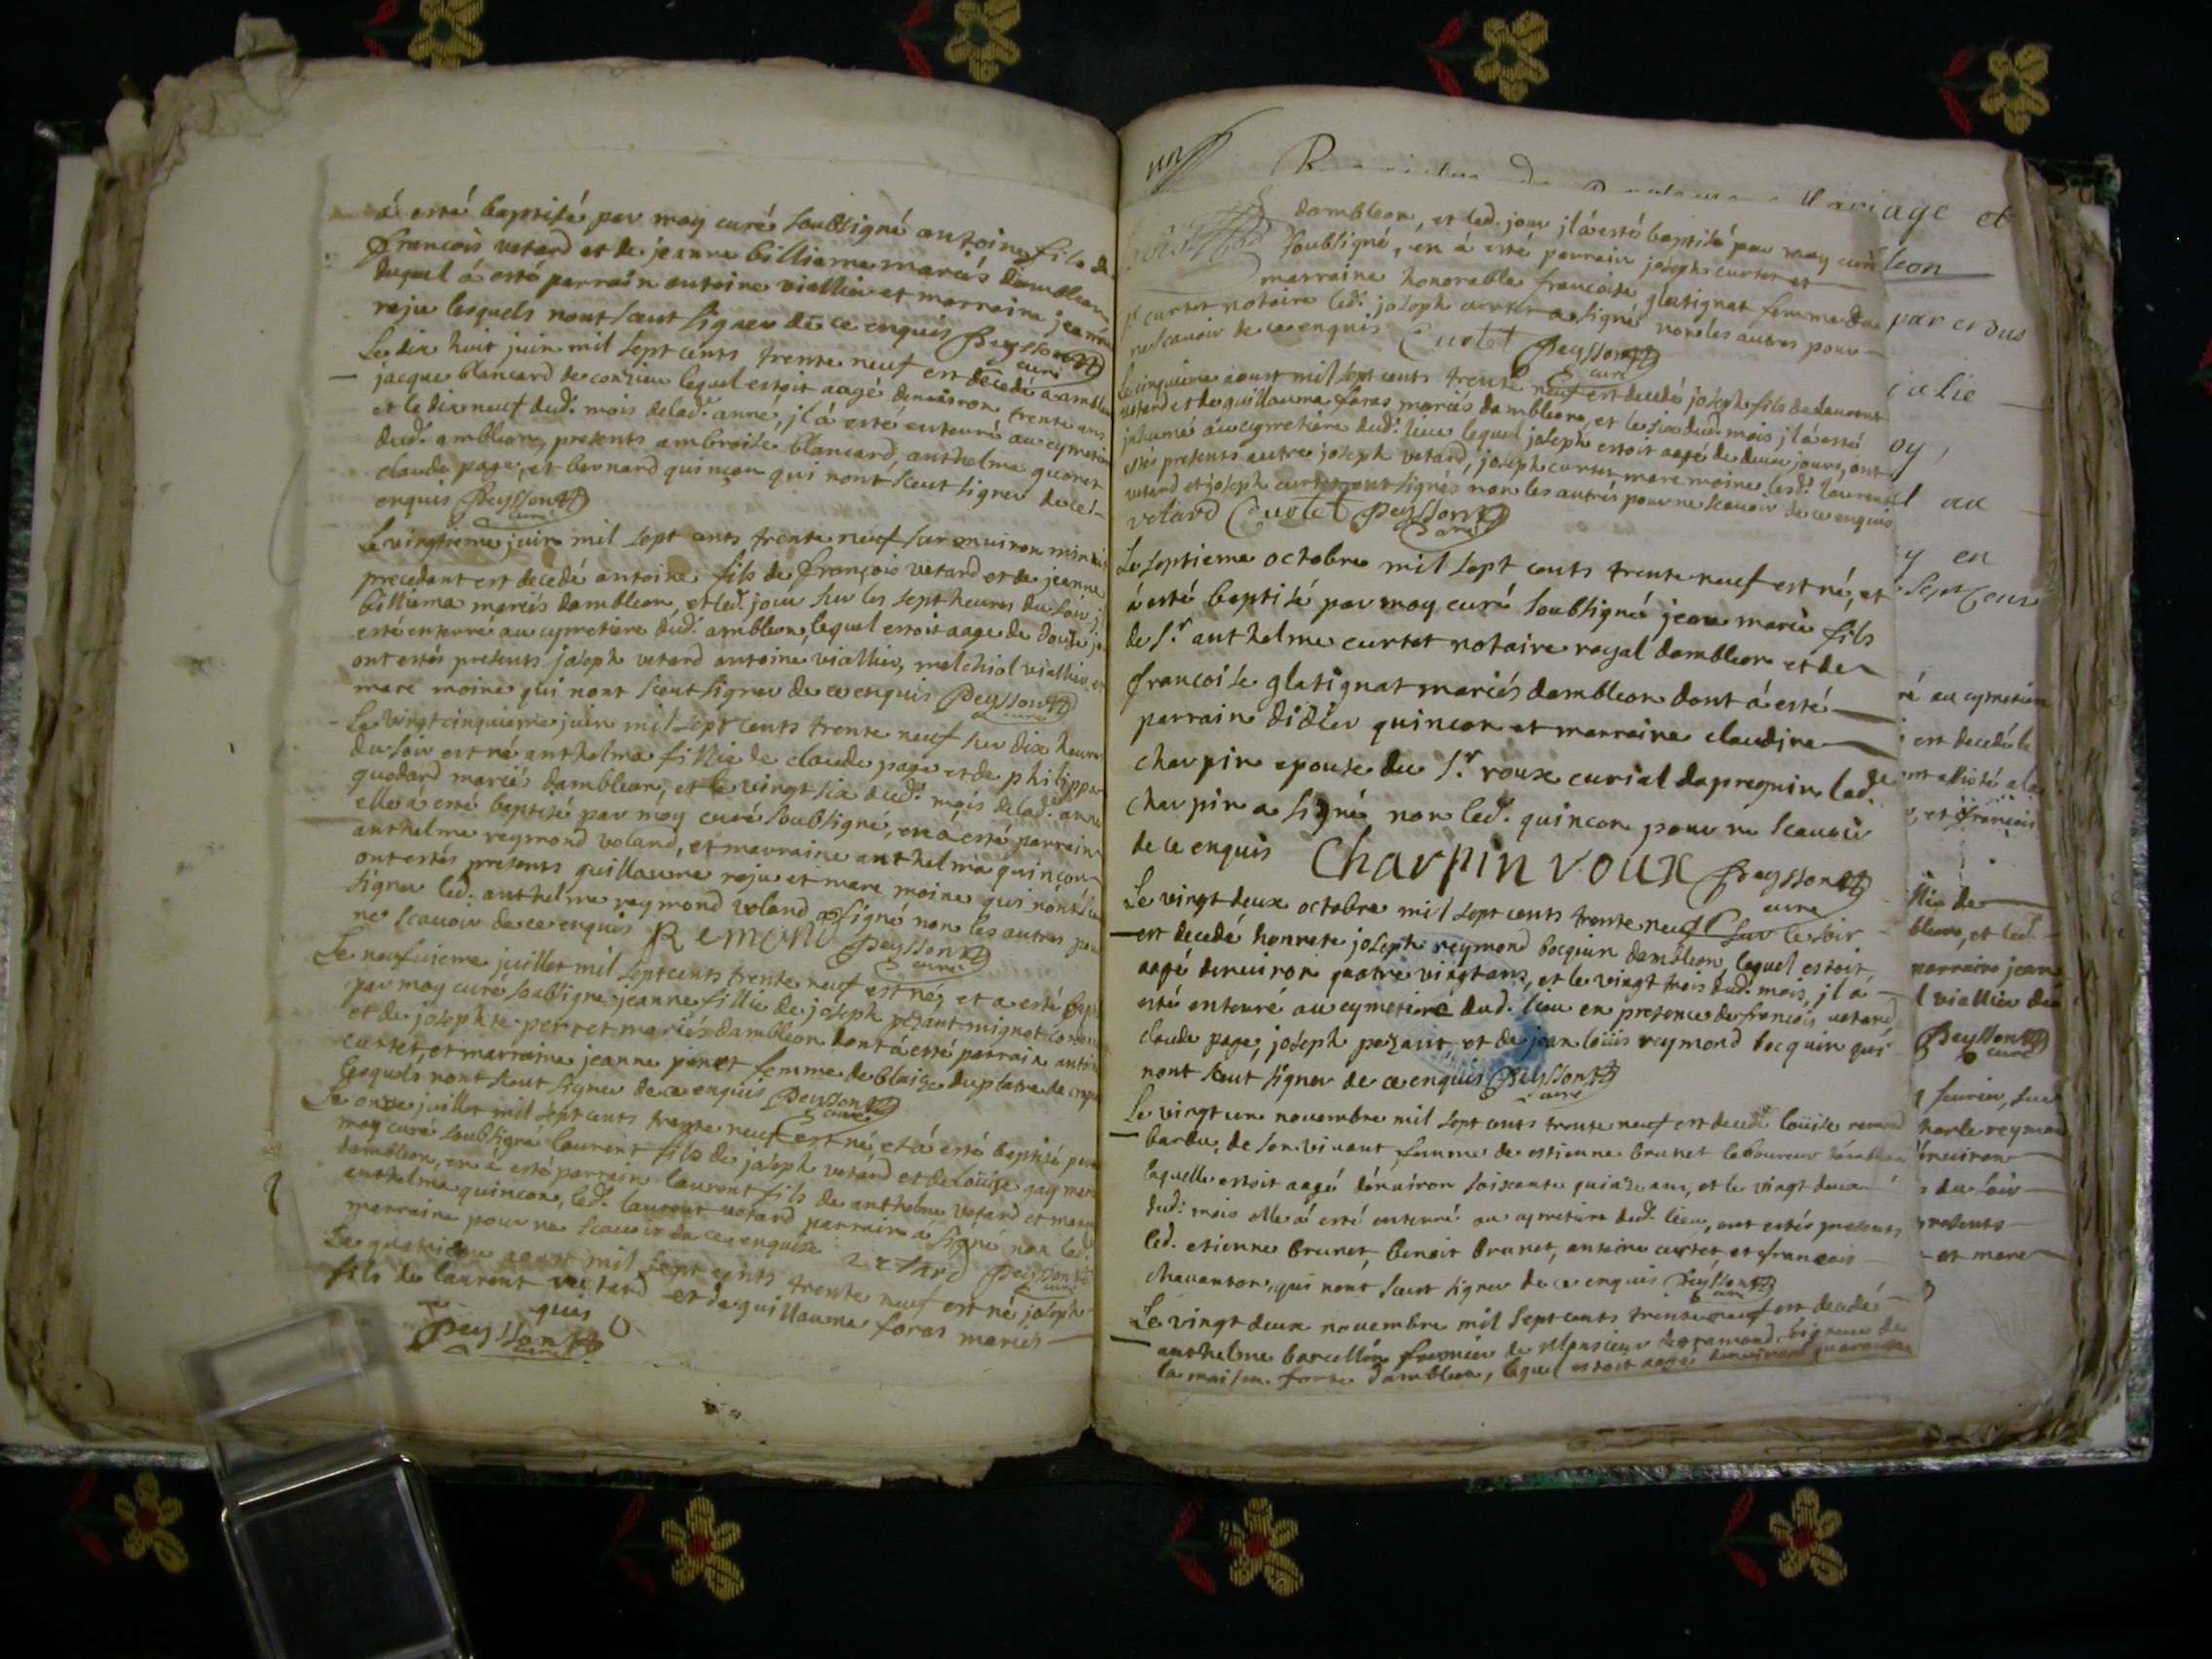 á esté baptisé par moy curé soubsigné antoine fils de
françois vetard et de jeanne billiema mariés dambleon
duquel á esté parrain antoine viallier et marraine jeanne
reju lesquels nont sceut signer de ce enquis Peysson
curé
Le dix huit juin mil sept cents trente neuf est décedé a amble
jacque blancard de conzieu lequel estoit aagé denviron trente ans
et le dix neuf dud. mois de lad.e anné, jl á esté enterré au cymetiere
dud. ambleon, presents ambroise blancard, anthelme guoret
claude page, et bernard quinçon qui nont sceut signer de ce
enquis Peysson
curé
Le vingtieme juin mil sept cents trente neuf sur environ minuit
precedant est decedé antoine fils de françois vetard et de jeanne
billiema mariés dambleon, et led. jour sur les sept heures du soir jl
esté enterré au cymetiere dud. ambleon, lequel estoit aage de douze
ont estés presents joseph vetard antoine viallier, melchiol viallier, et
marc moine qui nont sceut signer de ce enquis Peysson
curé
Le vingtcinquieme juin mil sept cents trente neuf sur dix heures
du soir est né anthelma fillie de claude page et de philippa
guodard mariés dambleon, et le vingt six dud. mois de lad.e anné
elle á esté baptisé par moy curé soubsigné, en á esté parrain
anthelme reymond voland, et marraine anthelma quinçon
ont estés presents guillaume reju et marc moine qui nont sceu
signer led. anthelme reymond voland a signé non les autres pour
ne scavoir de ce enquis Remond Peysson
curé
Le neufvieme juillet mil sept cents trente neuf est né, et a esté bapt
par moy curé soubsigné jeanne fillie de joseph pezant mignot
et de josephte perret mariés dambleon dont á esté parrain antoi
curtet, et marraine jeanne pinet femme de blaise duplatre de
lesquels nont sceut signer de ce enquis Peysson
curé
Le onze juillet mil sept cents trente neuf est né, et á esté baptisé par
moy curé soubsigné laurent fils de joseph vetard et de Loüise gay mari
dambleon, en á esté parrain laurent fils de anthelme vetard et marr
anthelma quinçon, led. laurent vetard parrain á signé non led.
marraine pour ne scavoir de ce enquise vetard Peysson
curé
Le quatrieme aoust mil sept cents trente neuf est né joseph
fils de laurent vetard et de guillauma foras mariés
quis
Peysson
curé
Mariage et
dambleon, et led. jour jl á esté baptisé par moy curé
soubsigné, en á esté parrain joseph curtet et
marraine honorable françoise glatignat femme du
s.r curtet notaire led. joseph curtet a signé non les autres pour
ne scavoir de ce enquis Curtet Peysson
curé
Le cinquieme aoust mil sept cents trente neuf est decedé joseph fils de laurent
vetard et de guillauma foras mariés dambleon, et le six dud. mois jl á esté
jnhumé au cymetiere dud. lieu lequel joseph estoit aagé de deux jours, ont
estés presents autre joseph vetard, joseph curtet, marc moine, lesd. laurent
vetard et joseph curtet ont signés non les autres pour ne scavoir de ce enquis
vetard Curtet Peysson
curé
Le septieme octobre mil sept cents trente neuf est né, et
á esté baptisé par moy curé soubsigné jean marie fils
de s.r anthelme curtet notaire royal dambleon et de
françoise glatignat mariés dambleon dont á esté
parrain didier quincon et marraine claudine
charpin epouse du s.r roux curial dapregnin lad.e
charpin a signé non led. quincon pour ne scavoir
de ce enquis Charpin roux Peysson
curé
Le vingt deux octobre mil sept cents trente neuf sur le soir
est decedé honnete joseph reymond bocquin dambleon, lequel estoit
aagé denviron quatre vingt ans, et le vingt trois dud. mois, jl á
esté enterré au cymetiere dud. lieu en presence de francois vetard
claude page, joseph pezant, et de jean loüis reymond bocquin qui
nont sceut signer de ce enquis Peysson
curé
Le vingt un novembre mil sept cents trente neuf est decedé loüise remond
bardu, de son vivant femme de estienne brunet laboureur dambleon
laquelle estoit aagé dénviron soixante quinze ans, et le vingt deux
dud. mois elle á esté enterré au cymetiere dud. lieu, ont estés presents
led. etienne brunet, benoit brunet, antoine curtet, et francois
chavanton, qui nont sceut signer de ce enquis Peysson
curé
Le vingt deux novembre mil sept cents trente neuf est decedé
anthelme barcellon fermier de Monsieur seigneur de
la maison forte dambleon, lequel estoit aagé denviron quarante
leon
par
oy
au
y en
Sept Cour
ré au cymetiere
est decedé le
et françois
llie de
bleon, et led.
parrain jean
l viallier
Peysson
curé
reymon
environ
du soir
presents
et marc